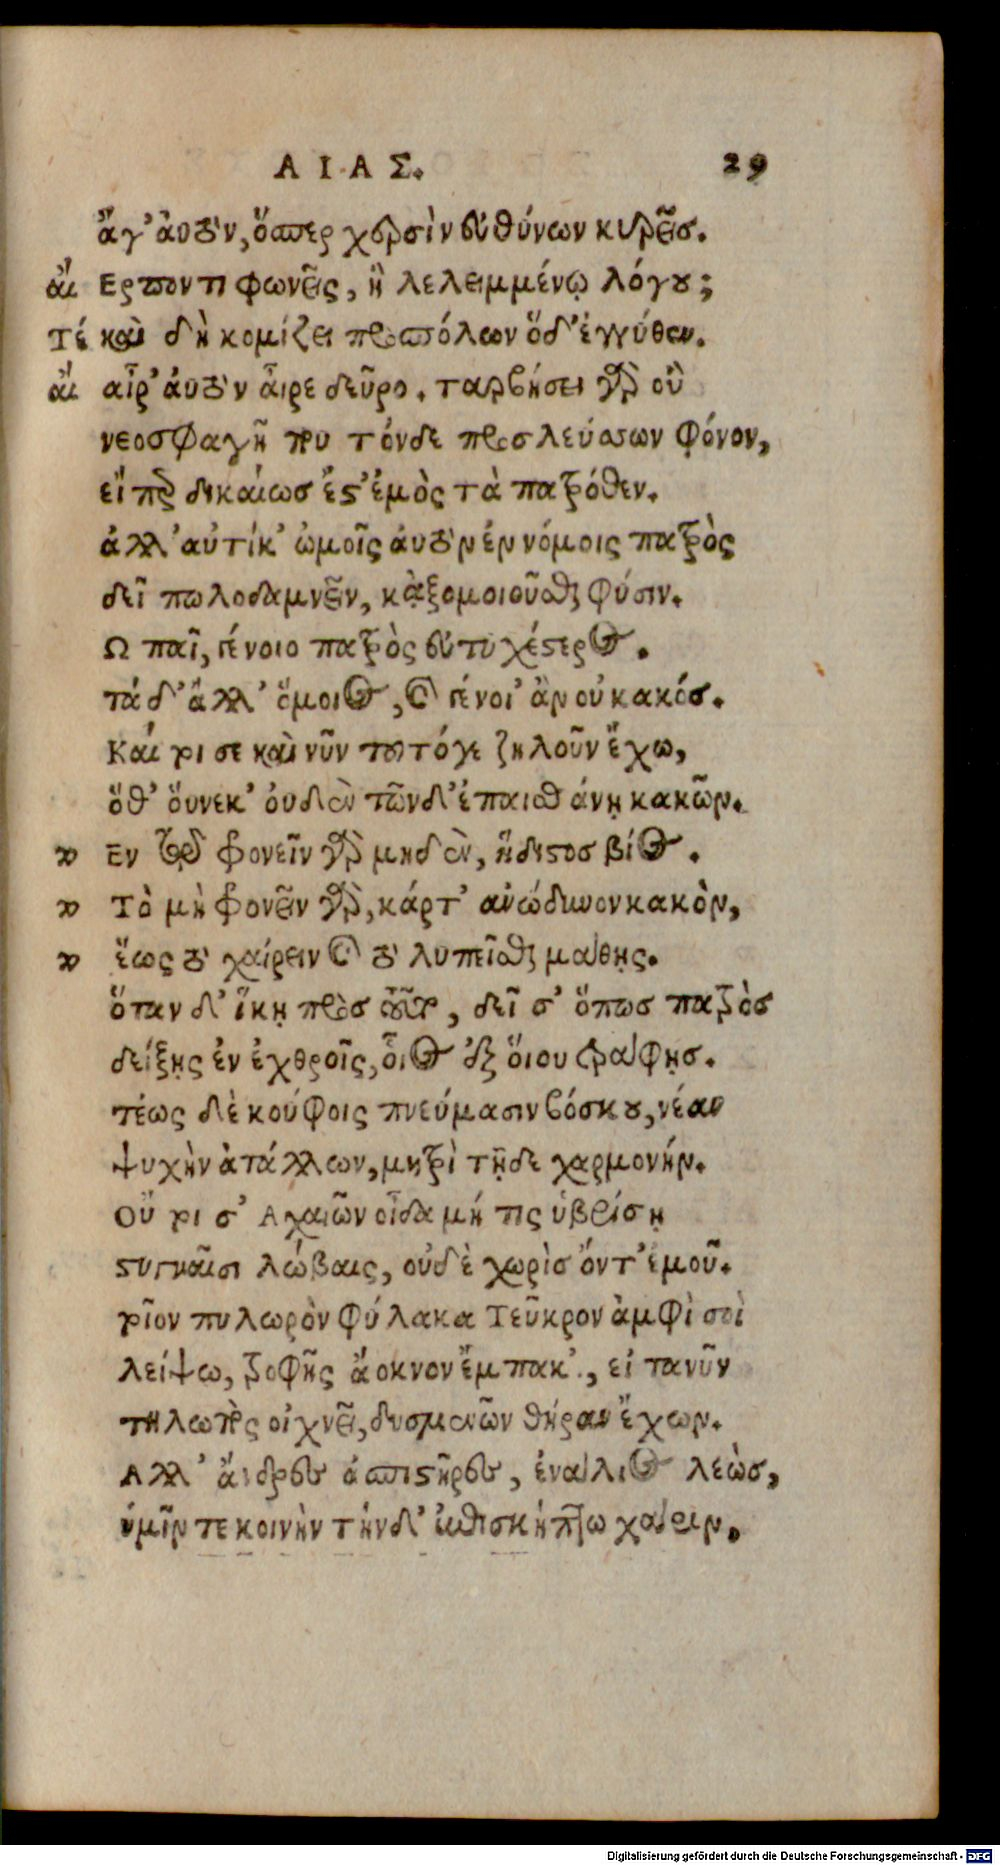 ΑΙΑΣ. 29
ἄγ' ἀυτὸν, ὅσπερ χερσὶν εὐθύνων κυρεῖσ.
ἄι Ερποντι φωνεῖς, ἢ λελειμμένῳ λόγου;
Τέ καὶ δὴ κομίζει προσπόλων ὅδ' ἐγγύθεν.
ἄι αἶρ' ἀυτὸν ἆιρε δεῦρο. ταρβήσει γὰρ οὒ
νεοσφαγῆ που τόνδε προσλεύσσων φόνον,
εἴπερ δικαίωσ ἔστ' ἐμὸς τὰ πατρόθεν.
ἀλλ' αὐτίκ' ὠμοῖς ἀυτὸν ἐν νόμοις πατρὸς
δεῖ πωλοδαμνεῖν, κᾀξομοιοῦσθαι φύσιν.
Ω παῖ, γένοιο πατρὸς εὐτυχέστερος.
τά δ' ἄλλ' ὅμοιος, καὶ γένοι' ἂν οὐ κακόσ.
Καί τοι σε καὶ νῦν τοῦτό γε ζηλοῦν ἔχω,
ὅθ' ὅυνεκ' ὀυδὲν τῶνδ' ἐπαισθάνῃ κακῶν.
Εν τῷ φρονεῖν γὰρ μηδὲν, ἥδιστοσ βίος.
Τὸ μὴ φρονεῖν γὰρ, κάρτ' ανώδυνον κακὸν,
ἕως τὸ χαίρειν καὶ τὸ λυπεῖσθαι μάθῃς.
ὅταν δ' ἵκῃ πρὸσ τοῦτο, δεῖ σ' ὅπωσ πατρὸσ
δείξῃς ἐν ἐχθροῖς, ὅιος ἐξ ὅιου τράφῃσ.
τέως δὲ κούφοις πνεύμασιν βόσκου, νέαν
ψυχὴν ἀτάλλων, μητρὶ τῇδε χαρμονήν.
Οὔ τοι σ' Αχαιῶν οἶδα μή τις ὑβρίσῃ
στυγναῖσι λώβαις, οὐδὲ χωρὶσ ὄντ' ἐμοῦ.
τοῖον πυλωρὸν φύλακα Τεῦκρον ἀμφὶ σοὶ
λείψω, τροφῆς ἄοκνον ἔμπακ', εἰ τανῦν
τηλωπὸς οἰχνεῖ, δυσμενῶν θήραν ἔχων.
Αλλ' ἄνδρες ἀσπιστῆρες, ἐνάλιος λεὼσ,
ὑμῖν τε κοινὴν τήνδ' ἐπισκήπτω χάριν,
Digitalisierung gefördert durch die Deutsche Forschungsgemeinschaft - DFG